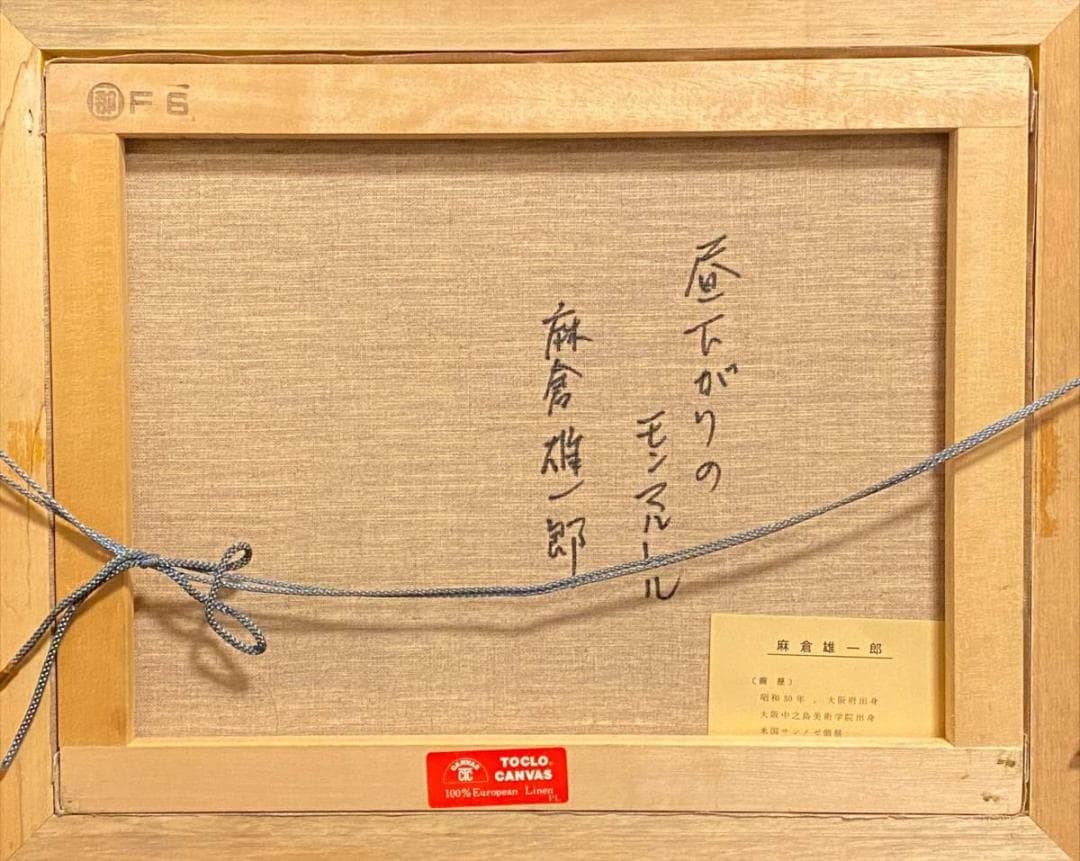 F 6
昼下がりの
モンマルトル
麻倉雄一郎
麻倉雄一郎
(画歴)
昭和50年 、大阪府出身
大阪中之島美術学院出身
米国サンノゼ個展
CANVAS
CTC
TOCLO
CANVAS
100% European Linen
PL